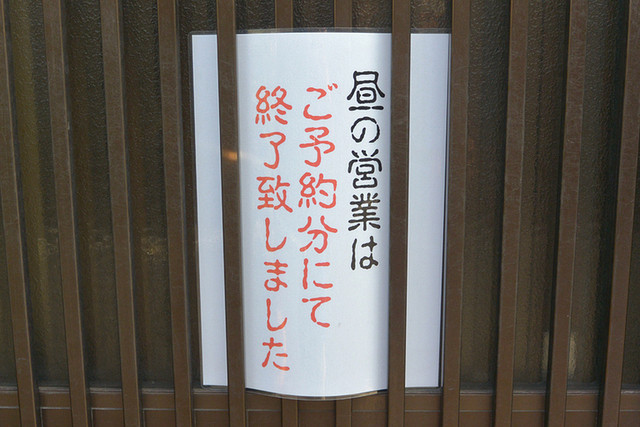 昼の営業は
ご予約分にて
終了致しました